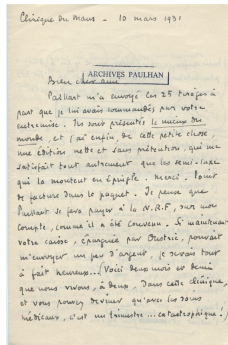 Clinique du Mans - 10 mars 1931
Bien cher ami
ARCHIVES PAULHAN
Paillart m'a envoyé les 25 tirages à
part que je lui avais commandés par votre
entremise. Ils sont présentés le mieux du
monde, et j'ai enfin de cette petite chose,
une édition nette et sans prétention, qui me
satisfait tout autrement que les semi-luxe
qui la montent en épingle. Merci. Point
de facture dans le paquet. Je pense que
Paillart se fera payer à la N.R.F., sur mon
compte, comme il a été convenu. Si maintenant
votre caisse, épargnée par Oustric, pouvait
m'envoyer un peu d'argent, je serais tout
à fait heureux... (Voici deux mois et demi
que nous vivons, à deux, dans cette clinique,
et vous pouvez deviner qu'avec les soins
médicaux, c'est un trimestre... catastrophique !)